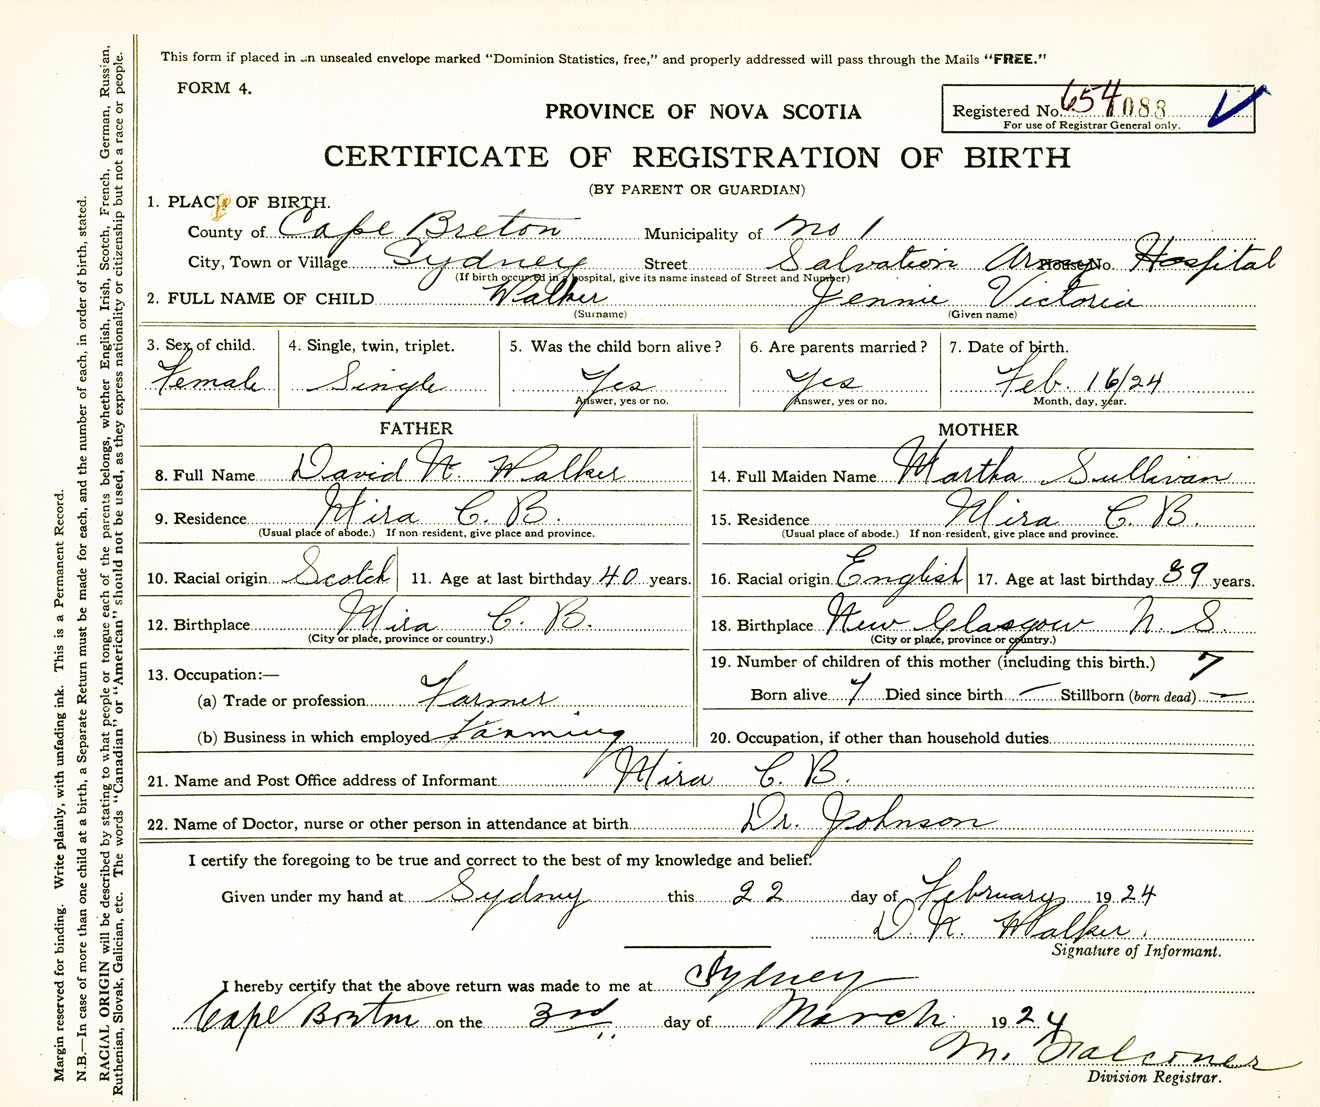 This form if placed in an unsealed envelope marked "Dominion Statistics, free," and properly addressed will pass through the Mails "FREE."
FORM 4.
PROVINCE OF NOVA SCOTIA
Registered No. 654 1088
For use of Registrar General only.
CERTIFICATE OF REGISTRATION OF BIRTH
(BY PARENT OR GUARDIAN)
1. PLACE OF BIRTH.
County of Cape Breton Municipality of No 1
City, Town or Village Sydney Street Salvation Army House No. Hospital
(If birth occurred in a hospital, give its name instead of Street and Number)
2. FULL NAME OF CHILD Walker Jennie Victoria
(Surname) (Given name)
3. Sex of child. 4. Single, twin, triplet. 5. Was the child born alive? 6. Are parents married? 7. Date of birth.
Female Single Yes Yes Feb. 16/24
Answer, yes or no. Answer, yes or no. Month, day, year.
FATHER
8. Full Name David N. Walker
9. Residence Mira C. B.
(Usual place of abode.) If non-resident, give place and province.
10. Racial origin Scotch 11. Age at last birthday 40 years.
12. Birthplace Mira C. B.
(City or place, province or country.)
13. Occupation:—
(a) Trade or profession Farmer
(b) Business in which employed Farming
MOTHER
14. Full Maiden Name Martha Sullivan
15. Residence Mira C. B.
(Usual place of abode.) If non-resident, give place and province.
16. Racial origin English 17. Age at last birthday 39 years.
18. Birthplace New Glasgow N. S.
(City or place, province or country.)
19. Number of children of this mother (including this birth.) 7
Born alive 7 Died since birth — Stillborn (born dead) —
20. Occupation, if other than household duties
21. Name and Post Office address of Informant Mira C. B.
22. Name of Doctor, nurse or other person in attendance at birth Dr. Johnson
I certify the foregoing to be true and correct to the best of my knowledge and belief.
Given under my hand at Sydney this 22 day of February 1924
D. N. Walker.
Signature of Informant.
I hereby certify that the above return was made to me at Sydney
Cape Breton on the 3rd day of March 1924
M. Falconer
Division Registrar.
Margin reserved for binding. Write plainly, with unfading ink. This is a Permanent Record.
N.B.—In case of more than one child at a birth, a Separate Return must be made for each, and the number of each, in order of birth, stated.
RACIAL ORIGIN will be described by stating to what people or tongue each of the parents belongs, whether English, Irish, Scotch, French, German, Russian,
Ruthenian, Slovak, Galician, etc. The words "Canadian" or "American" should not be used, as they express nationality or citizenship but not a race or people.